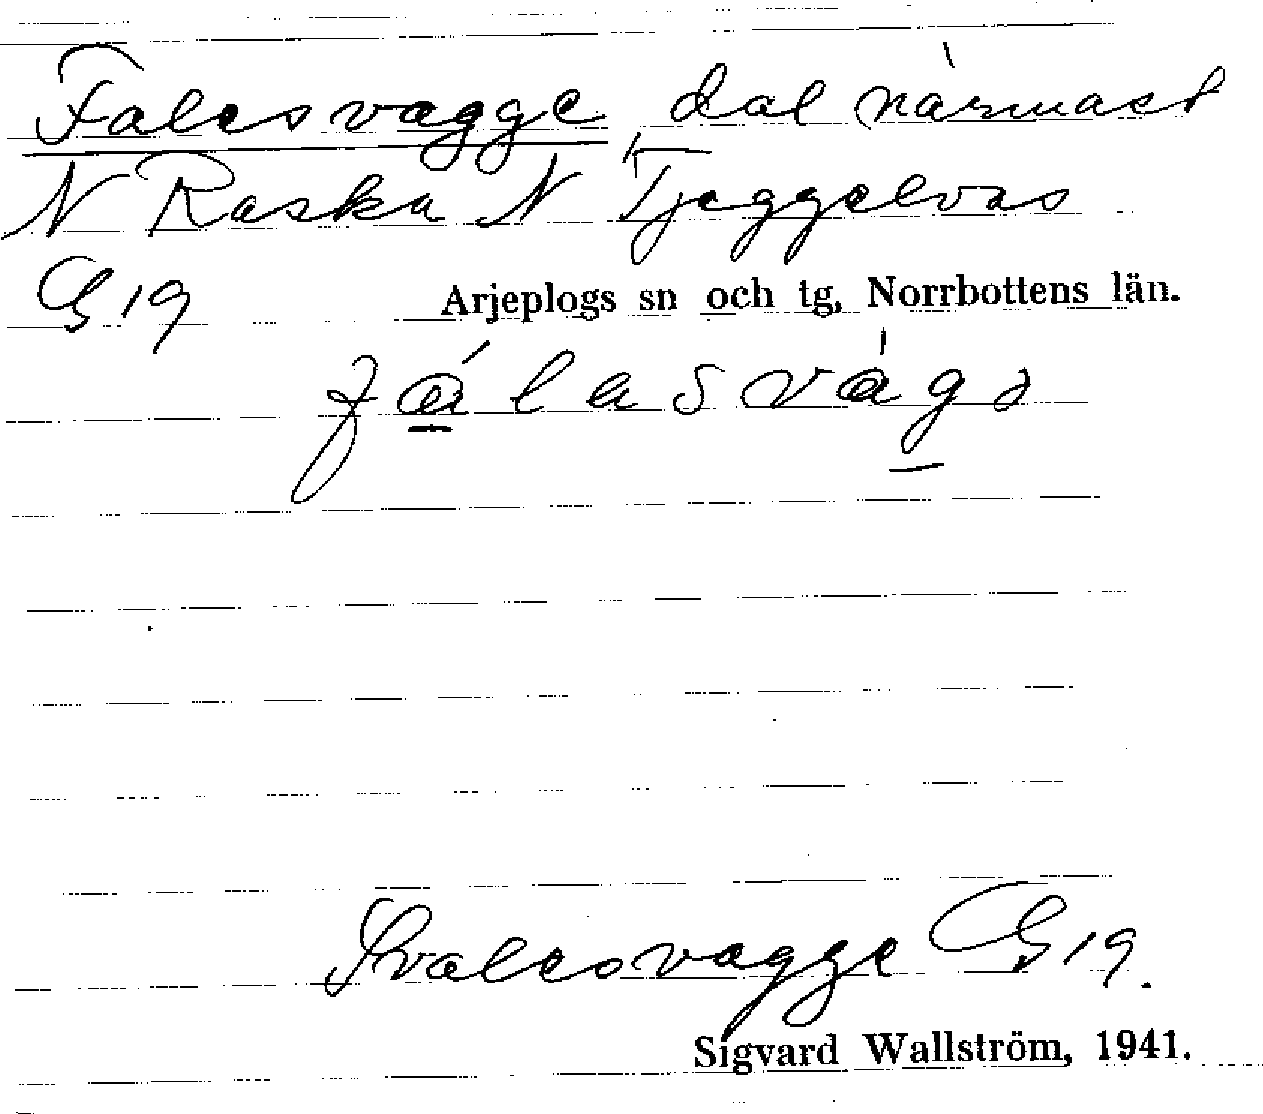 Falesvagge, dal närmast
N Raska N Tjeggelvas
G 19 Arjeplogs sn och tg, Norrbottens län.
fálasvágə
Svalesvagge G 19.
Sigvard Wallström, 1941.